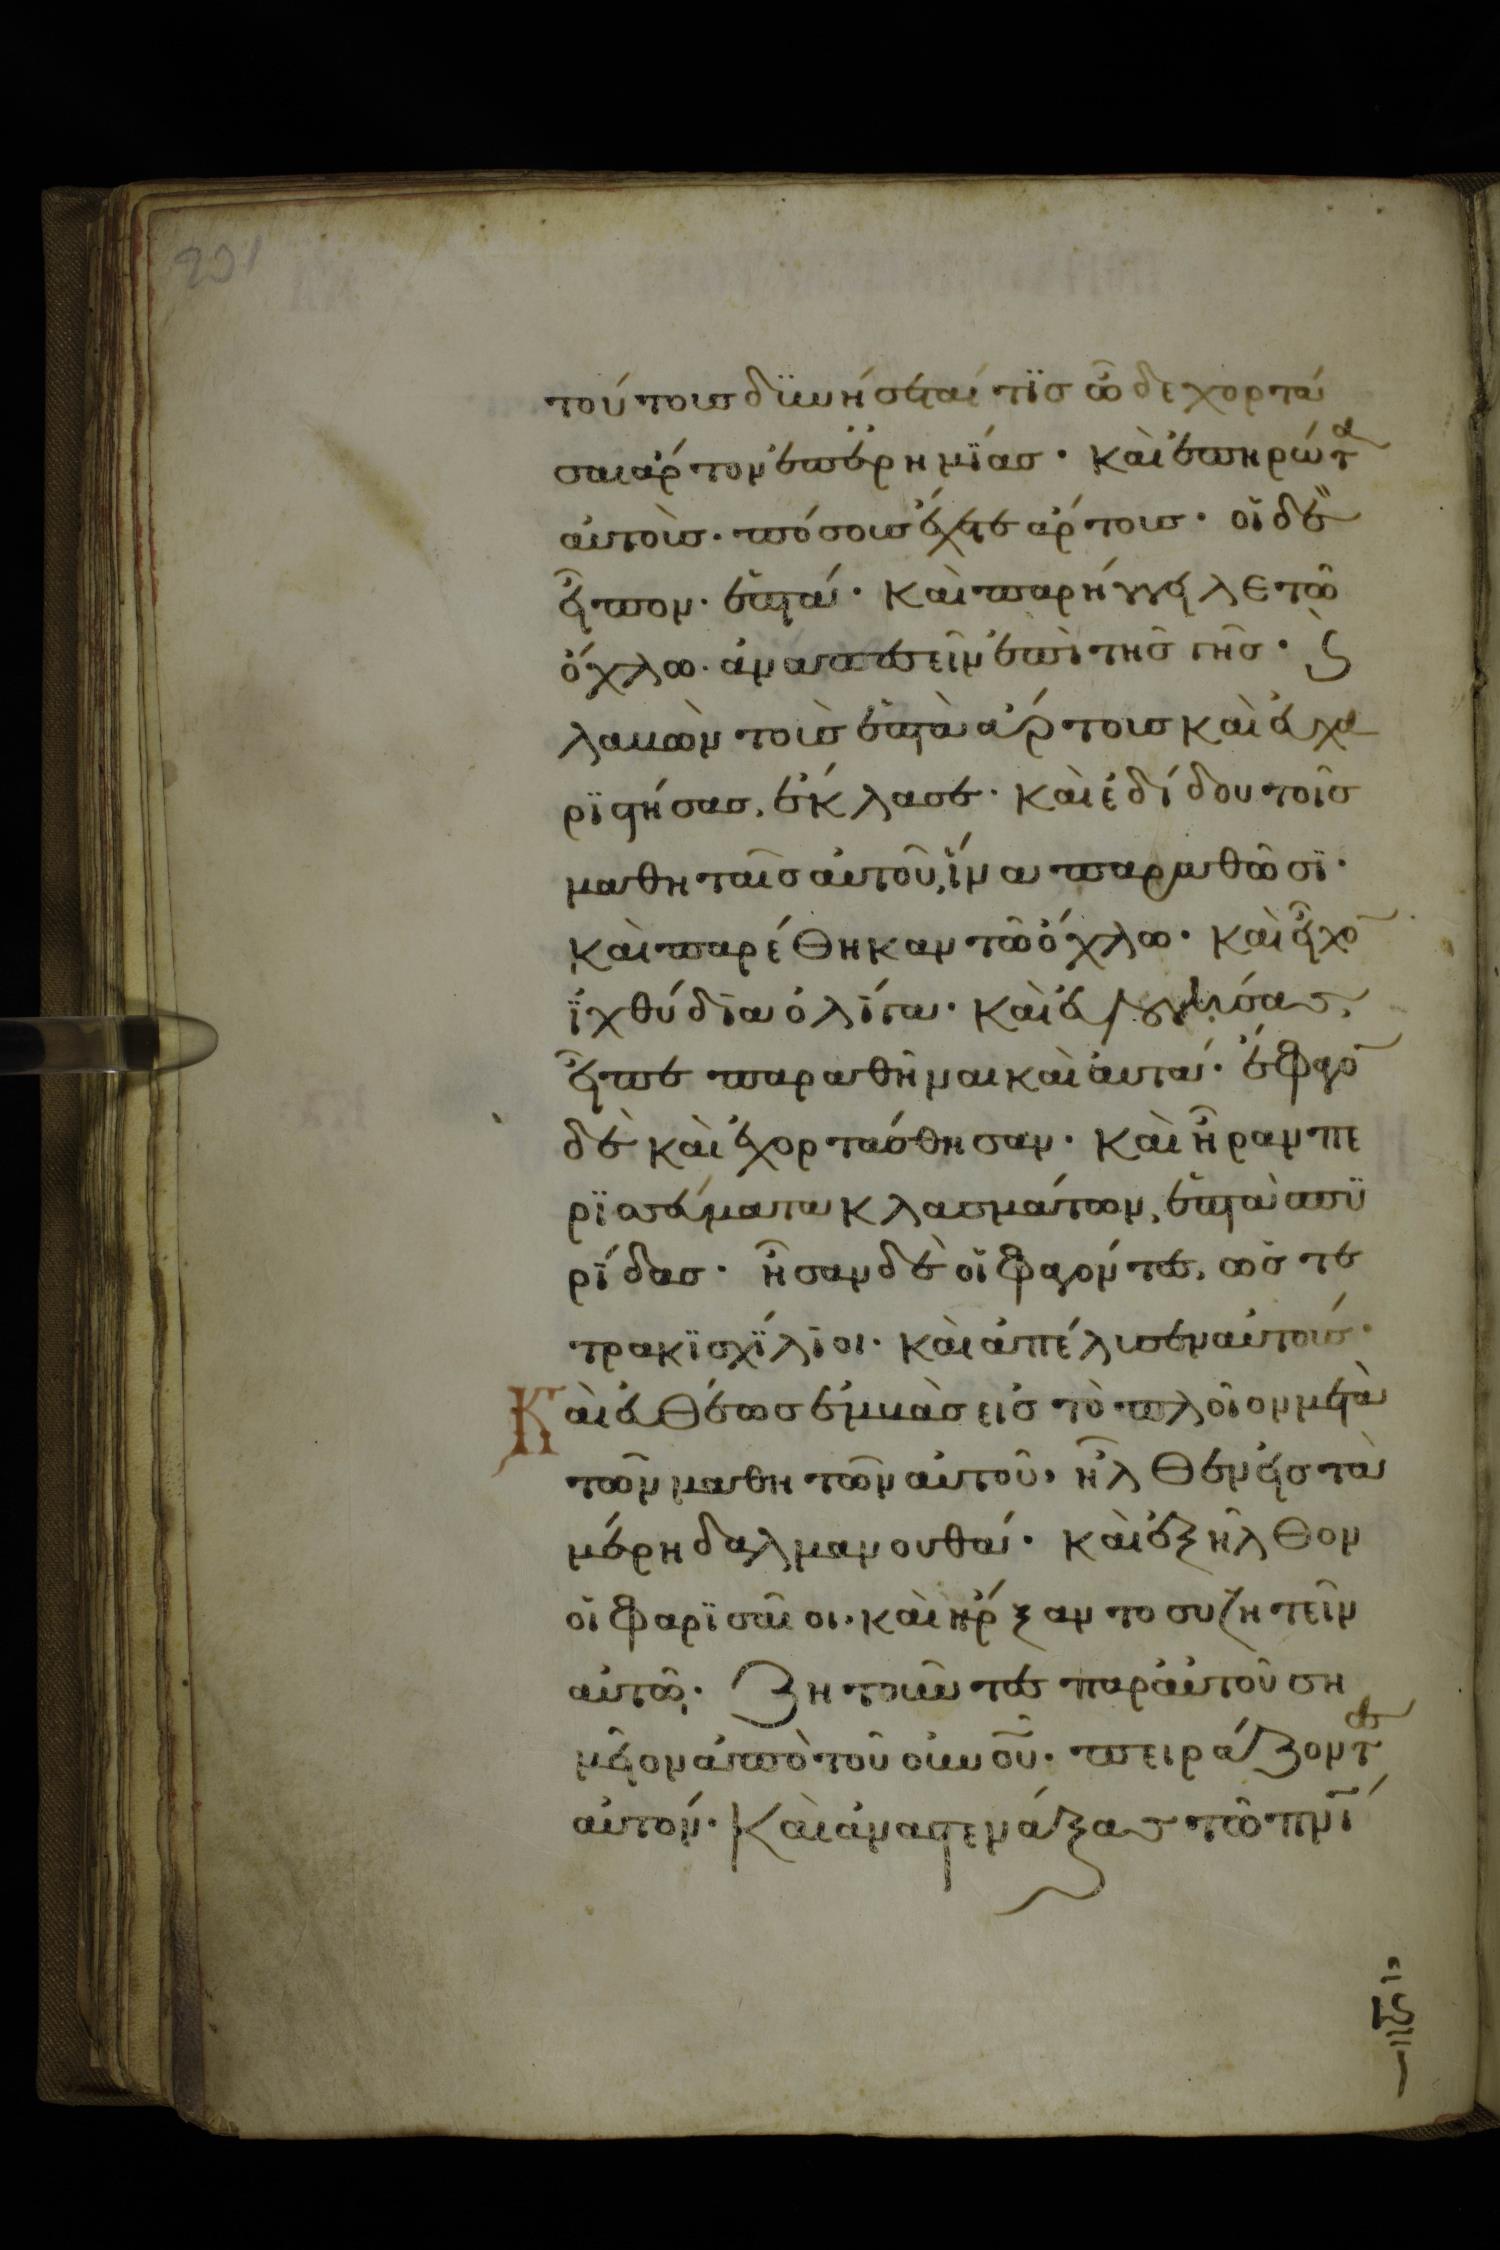 201
τούτους δϋνήσεται τϊσ ὧδε χορτά
σαι ἄρτον ἐπ ἐρημϊάσ· καὶ ἐπηρώτα
αὐτοὺσ· πόσουσ ἔχετε ἄρτουσ· οἱ δὲ
εἶπον· ἑπτά· καὶ παρήγγειλε τῶ
ὄχλω· ἀναπεσεῖν ἐπὶ τῆσ γῆσ· ϛ
λαβὼν τοὺσ ἑπτὰ ἄρτουσ καὶ εὐχα
ρϊστήσασ, ἔκλασε· καὶ ἐδίδου τοῖσ
μαθηταῖσ αὐτοῦ, ἵνα παραθῶσϊ·
καὶ παρέθηκαν τῶ ὄχλω· καὶ εἶχο
ϊχθύδϊα ὀλίγα· καὶ εὐλογήσασ,
εἶπε παραθῆναι καὶ αὐτά· ἔφαγο
δὲ καὶ ἐχορτάσθησαν· καὶ ἦραν πε
ρϊσσεύματα κλασμάτων, ἑπτὰ σπϋ
ρϊδασ· ἦσαν δὲ οἱ φαγόντεσ, ὡσ τε
τρακϊσχϊλϊοι· καὶ ἀπέλυσεν αὐτούσ·
Καὶ εὐθέωσ ἐμβὰσ εἰσ τὸ πλοῖον μετὰ
τῶν μαθητῶν αὐτοῦ, ἦλθεν εἰσ τὰ
μέρη δαλμανουθά· καὶ ἐξῆλθον
οἱ φαρϊσαῖοι· καὶ ἤρξαντο συζητεῖν
αὐτῶ· ζητοῦντεσ παρ αὐτοῦ ση
μεῖον ἀπὸ τοῦ οὐνοῦ· πειράζοντεσ
αὐτόν· Καὶ ἀναστενάξασ τῶ πνϊ